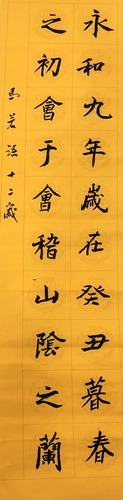 永和九年歲在癸丑暮春
之初會于會稽山陰之蘭
馬若語十二歲